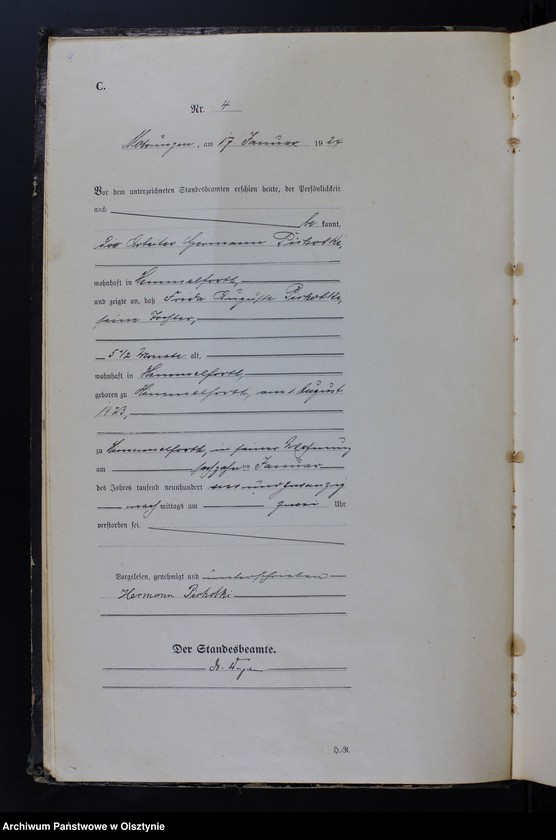 C.
Nr. 4
Mohrungen, am 17 Januar 1924
Vor dem unterzeichneten Standesbeamten erschien heute, der Persönlichkeit
nach be kannt,
der Arbeiter Hermann
wohnhaft in Himmelforth,
und zeigte an, daß Freda Auguste
seine Tochter,
5 1/2 Monate alt,
wohnhaft in Himmelforth,
geboren zu Himmelforth, am 1. August
1923,
zu Himmelforth, in seiner Wohnung
am sechzehn ten Januar
des Jahres tausend neunhundert vier und zwanzig
nach mittags um zwei Uhr
verstorben sei.
Vorgelesen, genehmigt und unterschrieben
Hermann
Der Standesbeamte.
H.-R.
Archiwum Państwowe w Olsztynie